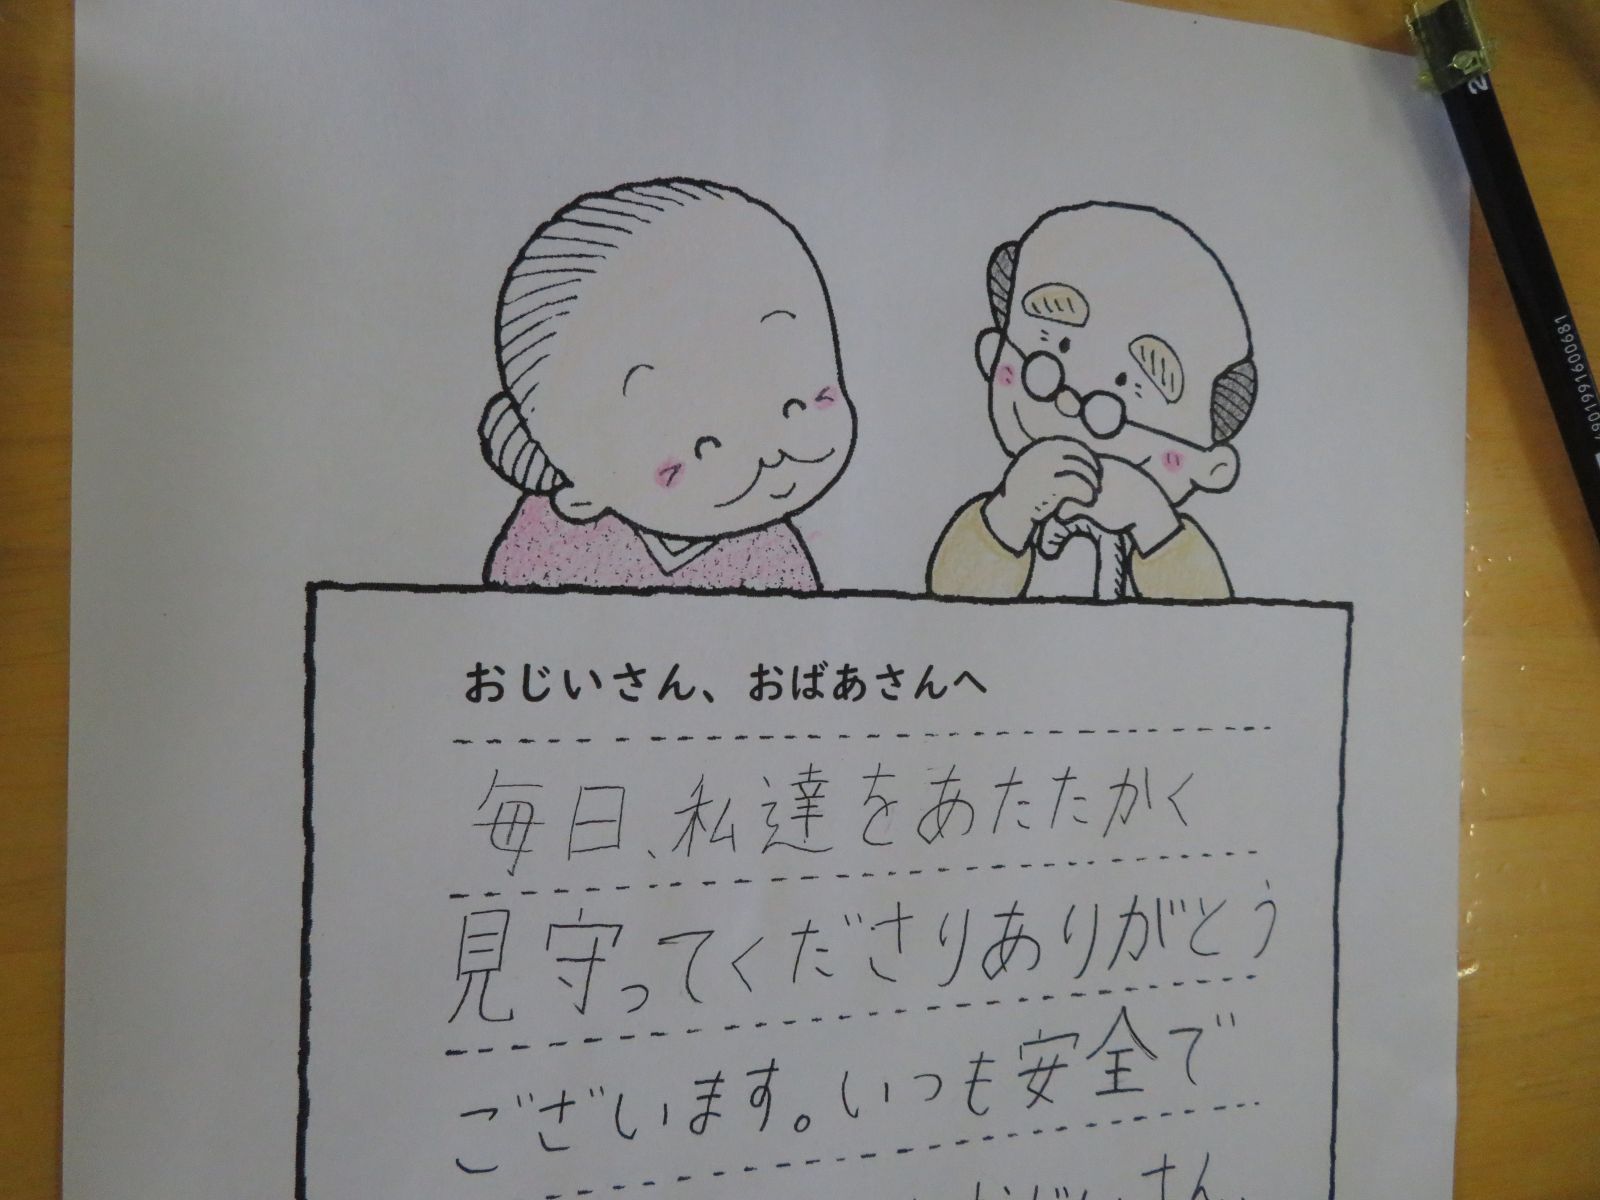 おじいさん、おばあさんへ
毎日、私達をあたたかく
見守ってくださりありがとう
ございます。いつも安全で
おじいさん、
4901991600681